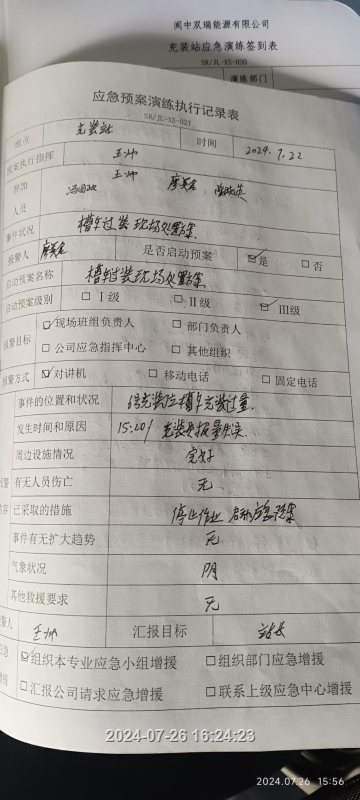 阆中双瑞能源有限公司
充装站应急演练签到表
SR/JL-XS-030
演练部门
应急预案演练执行记录表
SR/JL-XS-027
地点 充装站 时间 2024.7.22
预案执行指挥 王帅
参加 王帅
人员
事件状况 槽车过装现场处置方案
报警人 是否启动预案 ☑是 □否
启动预案名称 槽车过装现场处置方案
启动预案级别 □Ⅰ级 □Ⅱ级 ☑Ⅲ级
报警目标 ☑现场班组负责人 □部门负责人
□公司应急指挥中心 □其他组织
报警方式 ☑对讲机 □移动电话 □固定电话
事件的位置和状况 6号充装位槽车充装过量
发生时间和原因 15:20/ 充装员报量失误
周边设施情况 完好
有无人员伤亡 无
已采取的措施 停止作业 启动应急预案
事件有无扩大趋势 无
气象状况 阴
其他救援要求 无
王帅 汇报目标 站长
☑组织本专业应急小组增援 □组织部门应急增援
□汇报公司请求应急增援 □联系上级应急中心增援
2024-07-26 16:24:23
2024.07.26 15:56